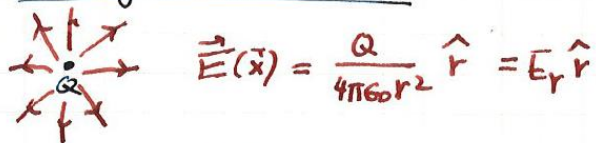 Q
\vec{E}(\vec{x}) = \frac{Q}{4\pi\epsilon_0 r^2} \hat{r} = E_r \hat{r}